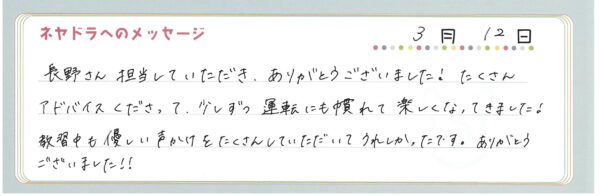 ネヤドラへのメッセージ
3月 12日
長野さん 担当していただき、ありがとうございました! たくさん
アドバイスくださって、少しずつ 運転にも慣れて 楽しくなってきました!
教習中も優しい声かけをたくさんしていただいて うれしかったです。ありがとう
ございました!!